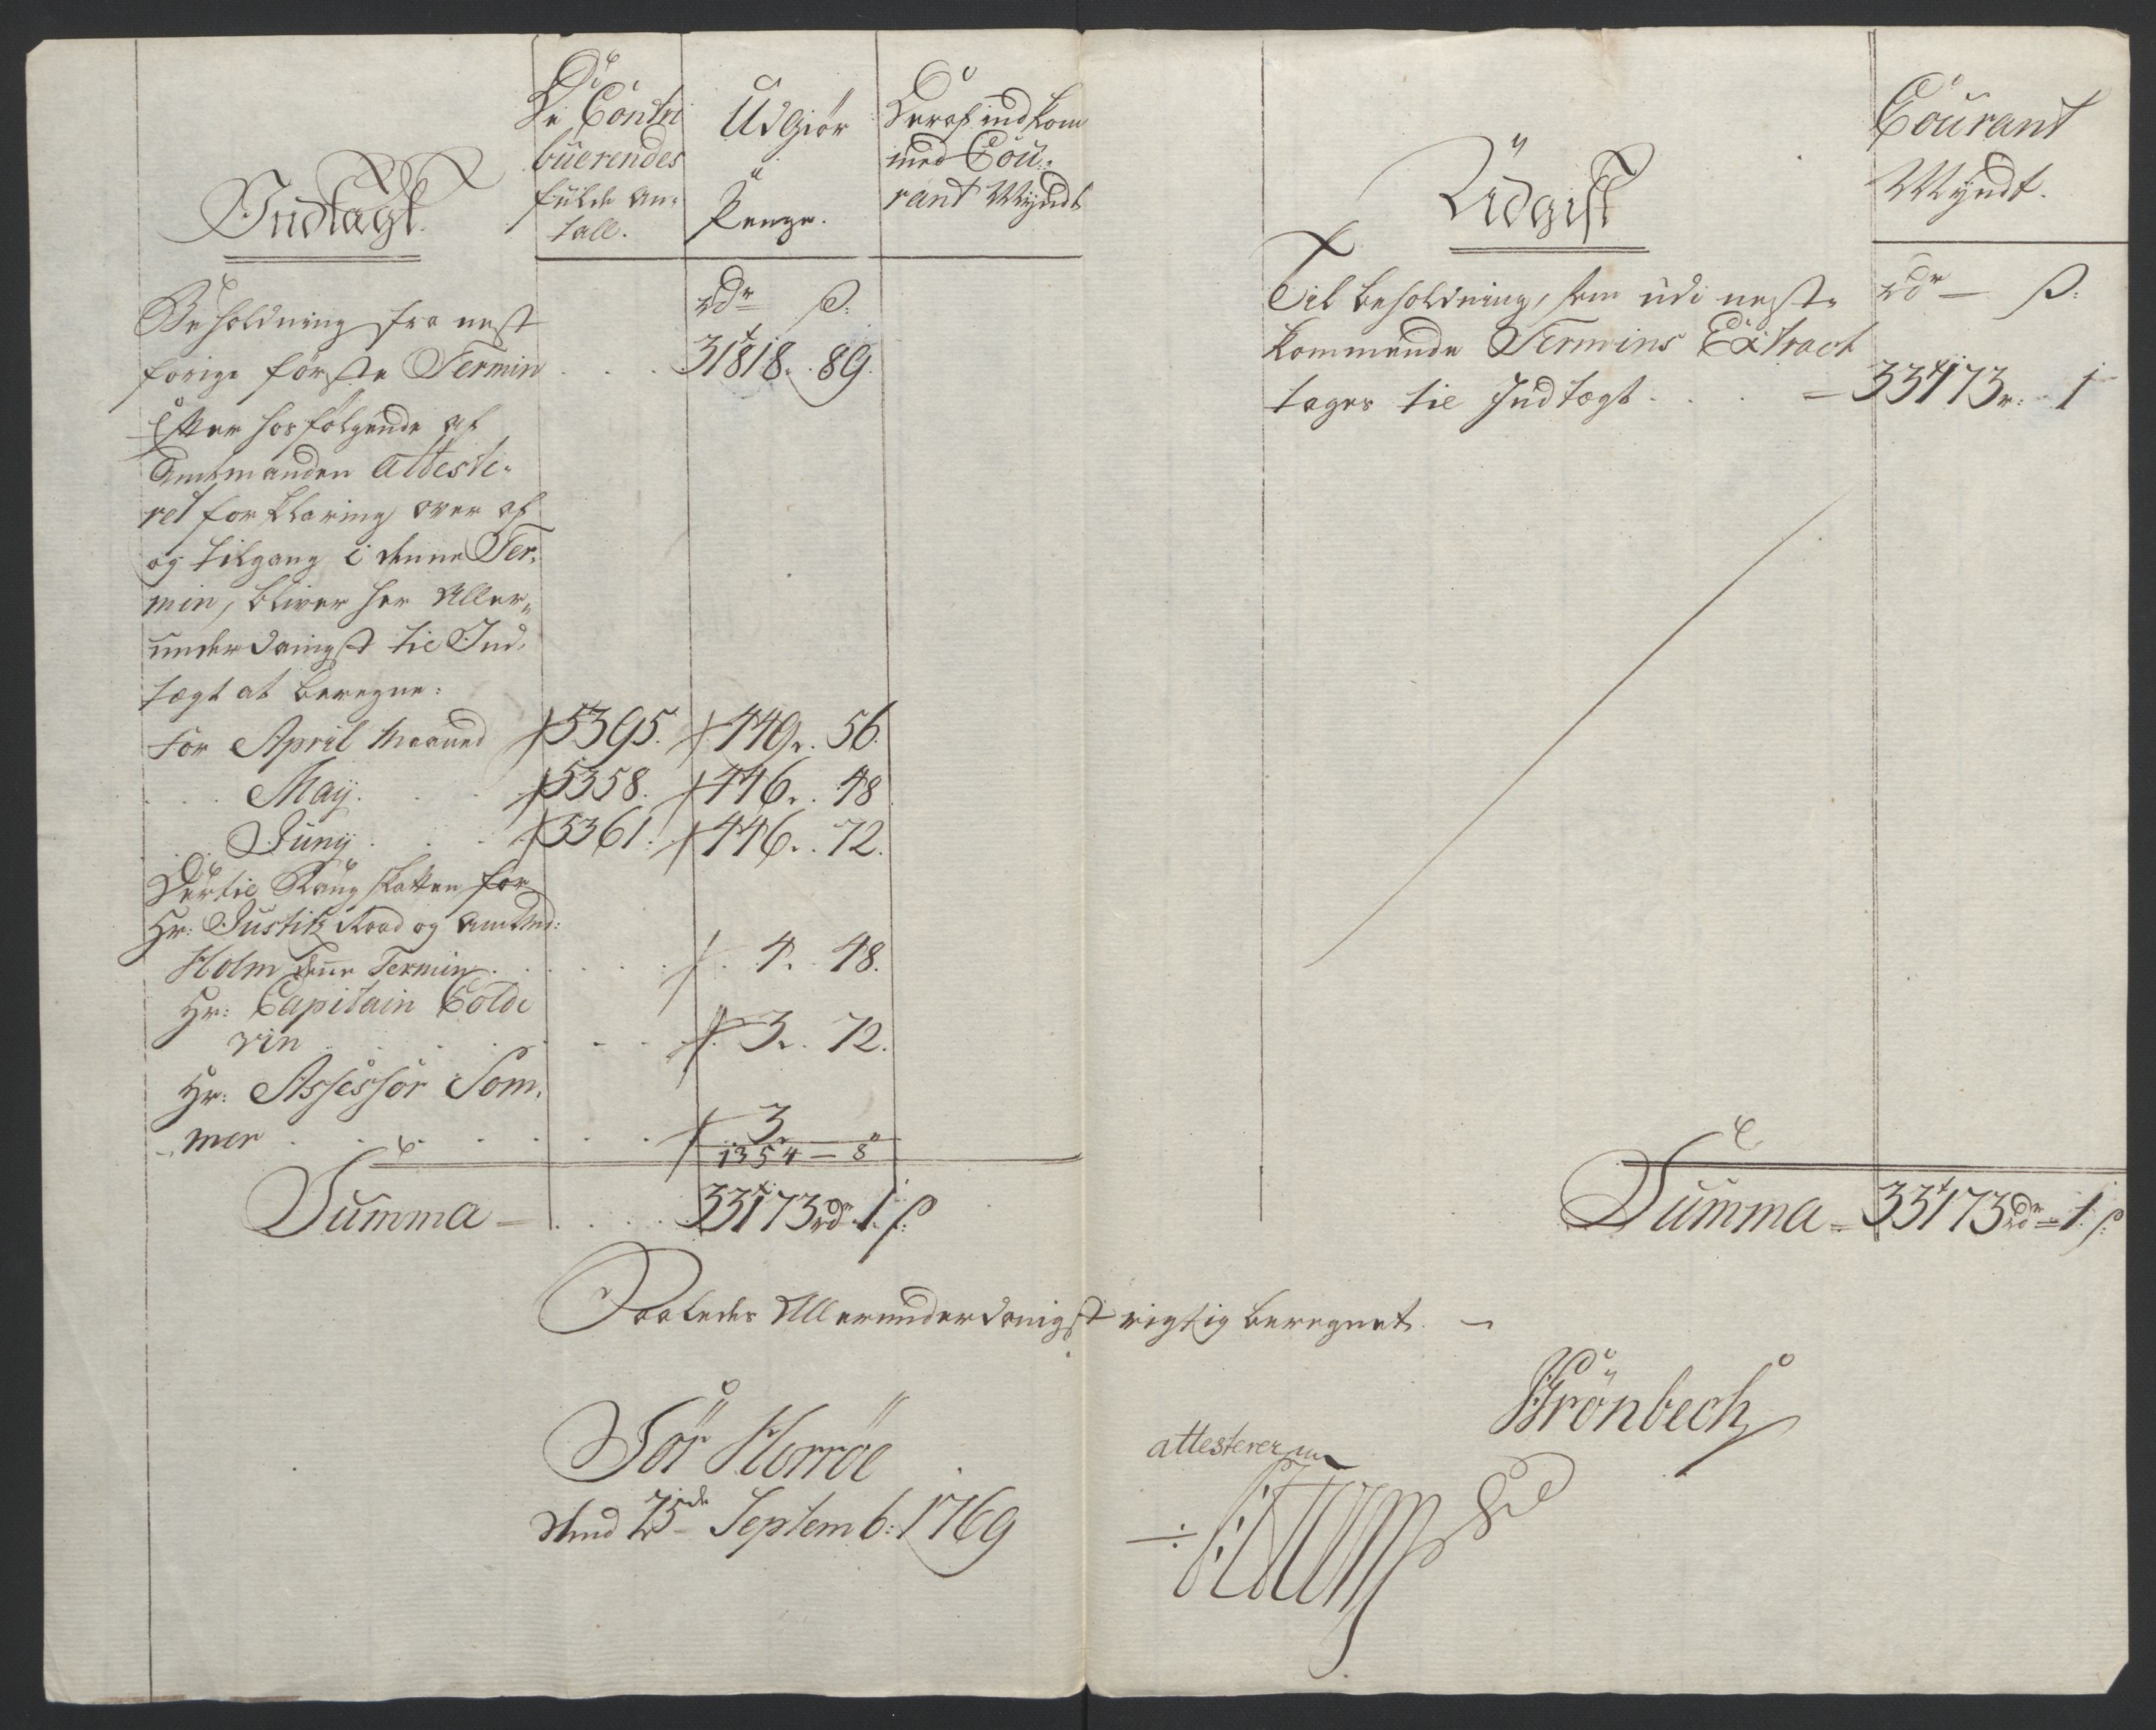 Indtægt.
De Contri
buerendes
fulde An-
tall.
Udgiør
Penge.
Deraf indkom
med Cou-
rant Myndt
rdr ß:
Beholdning fra nest
forige første Termin . . . 31818. 89.
Efter hosfølgende af
Amtmanden Attesti-
ret forklaring over af
og tilgang i denne Ter-
min, bliver her Aller-
underdanigst til Ind-
tægt at beregne:
For April Maaned 5395. 449. 56.
May. 5358. 446. 48
Juny. 5361. 446. 72.
Dertil Rang skatten for
Hr: Justitz Raad og Amtmd:
Holm denne Termin . . . 4. 48.
Hr: Capitain Colde
vin . . . 3. 72.
Hr: Assessor Som-
mer . . . 3.
1354 — 8
Summa — . . . 33173 rdr 1 ß
Udgift
Courant
Myndt.
rdr — ß:
Til beholdning, som udi nest-
kommende Termins Extract
tages til Indtægt . . . — 33173. 1
Summa = 33173 rdr = 1 ß
Saaledes Allerunderdanigst rigtig beregnet. —
Sør Herrøe
dend 25de Septemb: 1769
Grönbech
attesterer
Holm